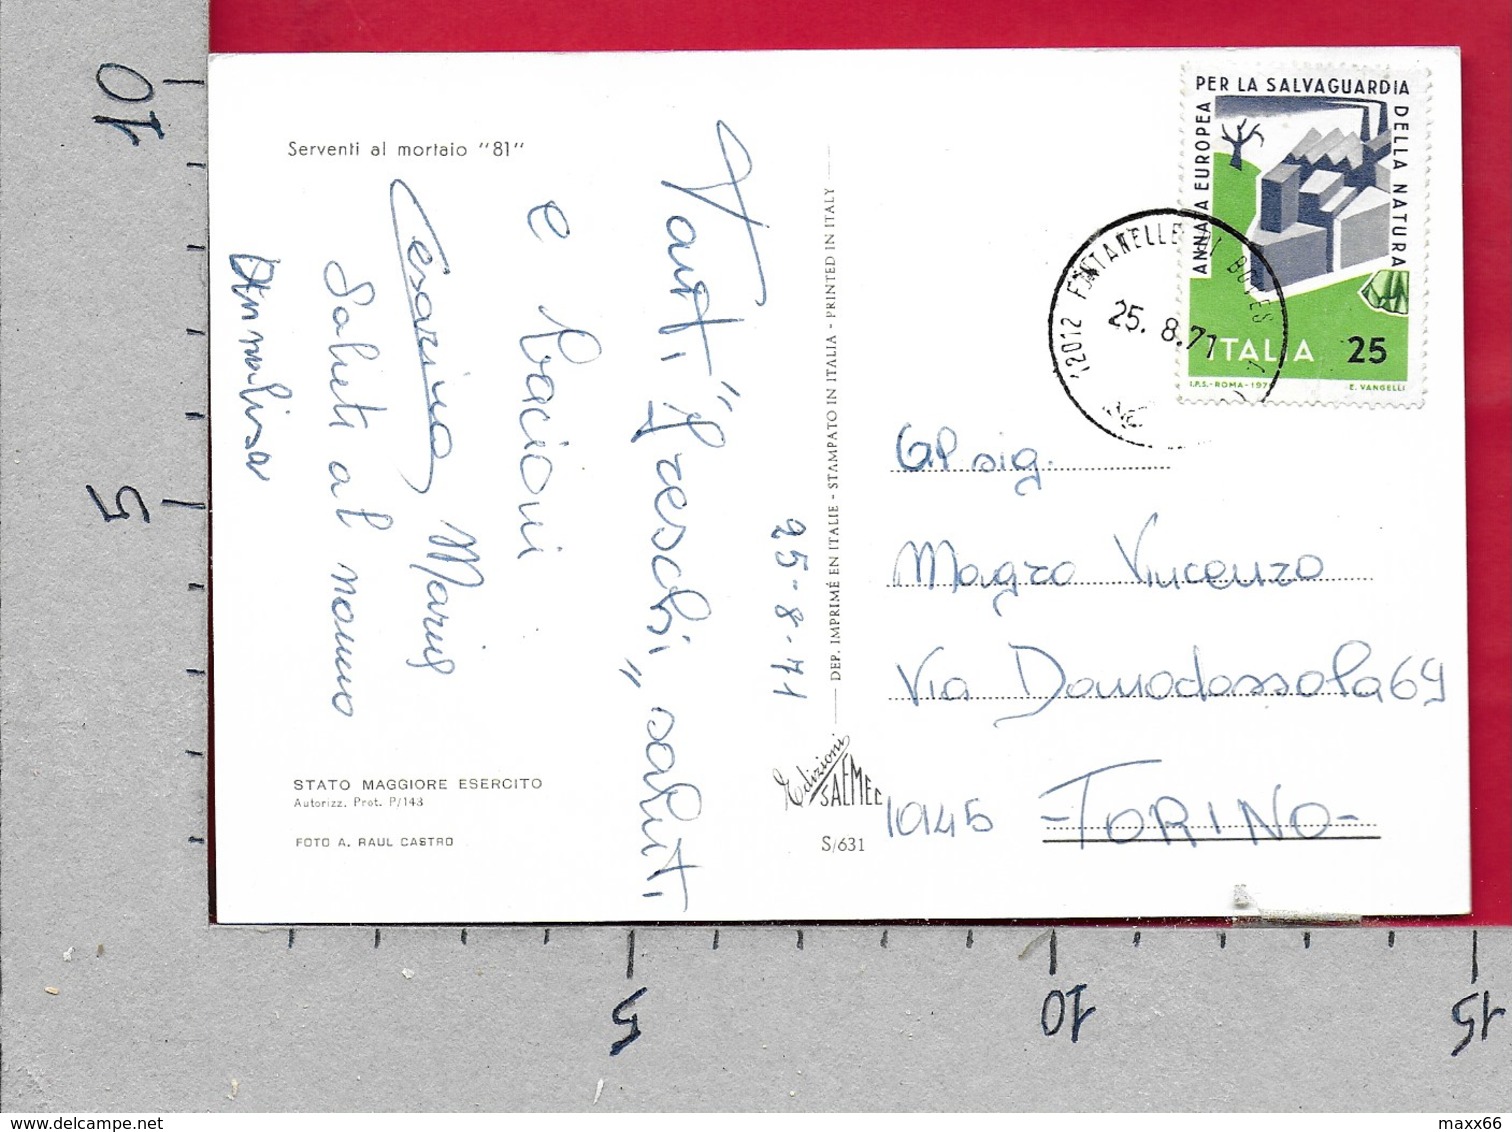 10
5
Serventi al mortaio "81"
25-8-71
Tanti "freschi" saluti
e bacioni
Cesarina Maris
Saluti al nonno
Annalisa
STATO MAGGIORE ESERCITO
Autorizz. Prot. P/143
FOTO A. RAUL CASTRO
DEP. IMPRIMÉ EN ITALIE - STAMPATO IN ITALIA - PRINTED IN ITALY
Edizioni
SAEMEC
S/631
ANNATA EUROPEA PER LA SALVAGUARDIA DELLA NATURA
ITALIA 25
I.P.S.-ROMA-1970 E. VANGELLI
12012 FONTANELLE DI BOVES
25. 8.71
Gl sig.
Magro Vincenzo
Via Domodossola 69
10145 -TORINO-
5
10
15
www.delcampe.net
maxx66